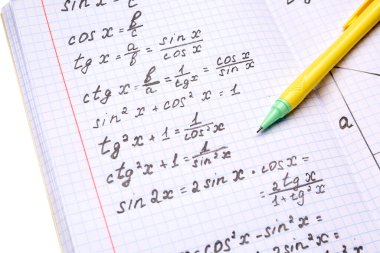 sin x = a/c
cos x = b/c
tg x = a/b = sin x/cos x
ctg x = b/a = 1/tg x = cos x/sin x
sin² x + cos² x = 1
tg² x + 1 = 1/cos² x
ctg² x + 1 = 1/sin² x
sin 2x = 2 sin x · cos x =
= 2 tg x/1 + tg² x
= cos² x - sin² x =
2 sin² x =
a